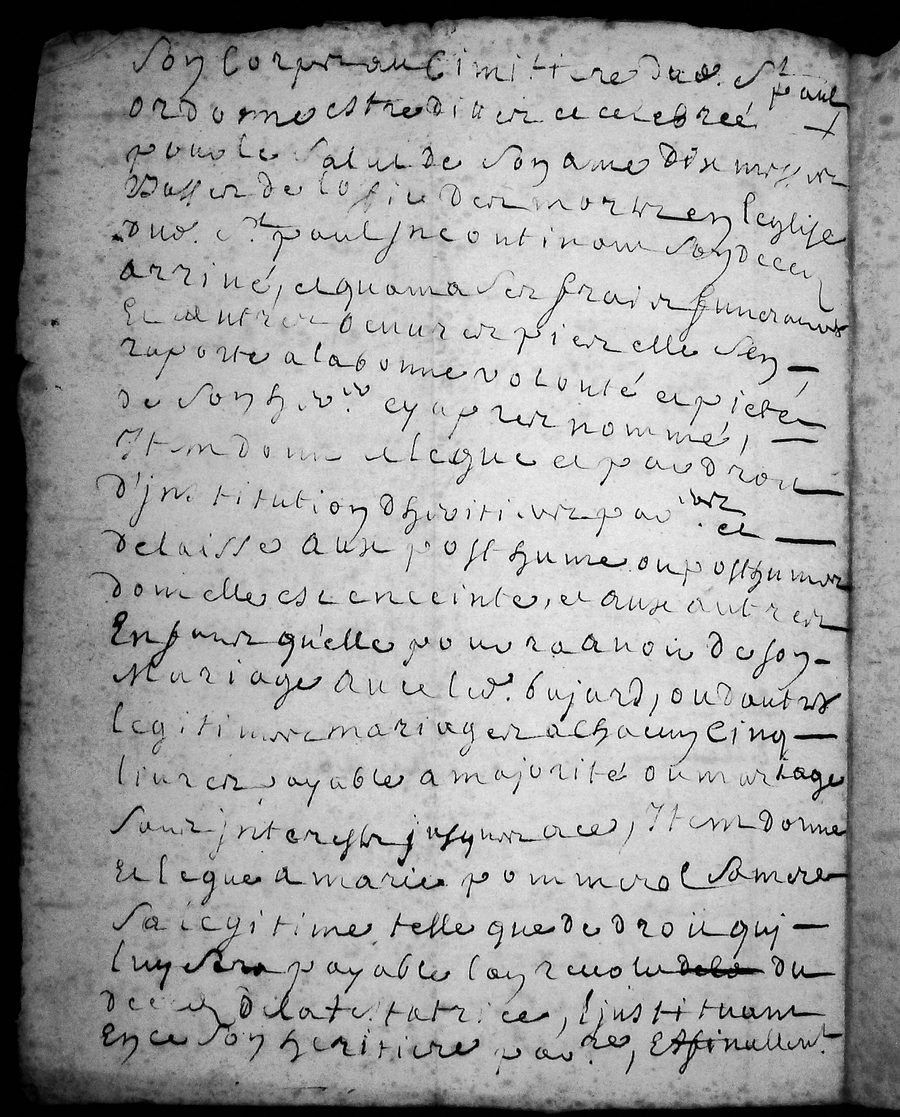 Son Corps au Cimittere dud. St paul
ordonne estre dittes et celebrées
pour le salut de son ame dix messes
Basses de lofice des mortz en leglise
dud. St paul Incontinant son deces
arrivé, et quant a ses fraix funeraires
Et autres oeuvres pies elle sen
raporte a la bonne volonté et pieté
de son her. cy apres nommé,
Item donne et legue et par droit
d'Institution dheritiers par.res et
delaisse aux posthume ou posthumes
dont elle est enceinte, et aux autres
Enfans qu'elle pourra avoir de son
Mariage avec led. bujard, ou dautres
legitimes mariages a chacun Cinq
livres payable a majorité ou mariage
sans interestz jusques a ce, Item donne
Et legue a marie pommerol sa mere
sa legitime telle que de droit qui
luy sera payable lan revolu dela du
deces de la testatrice, l'instituant
En ce son heritiere par.re, Et finallem.t